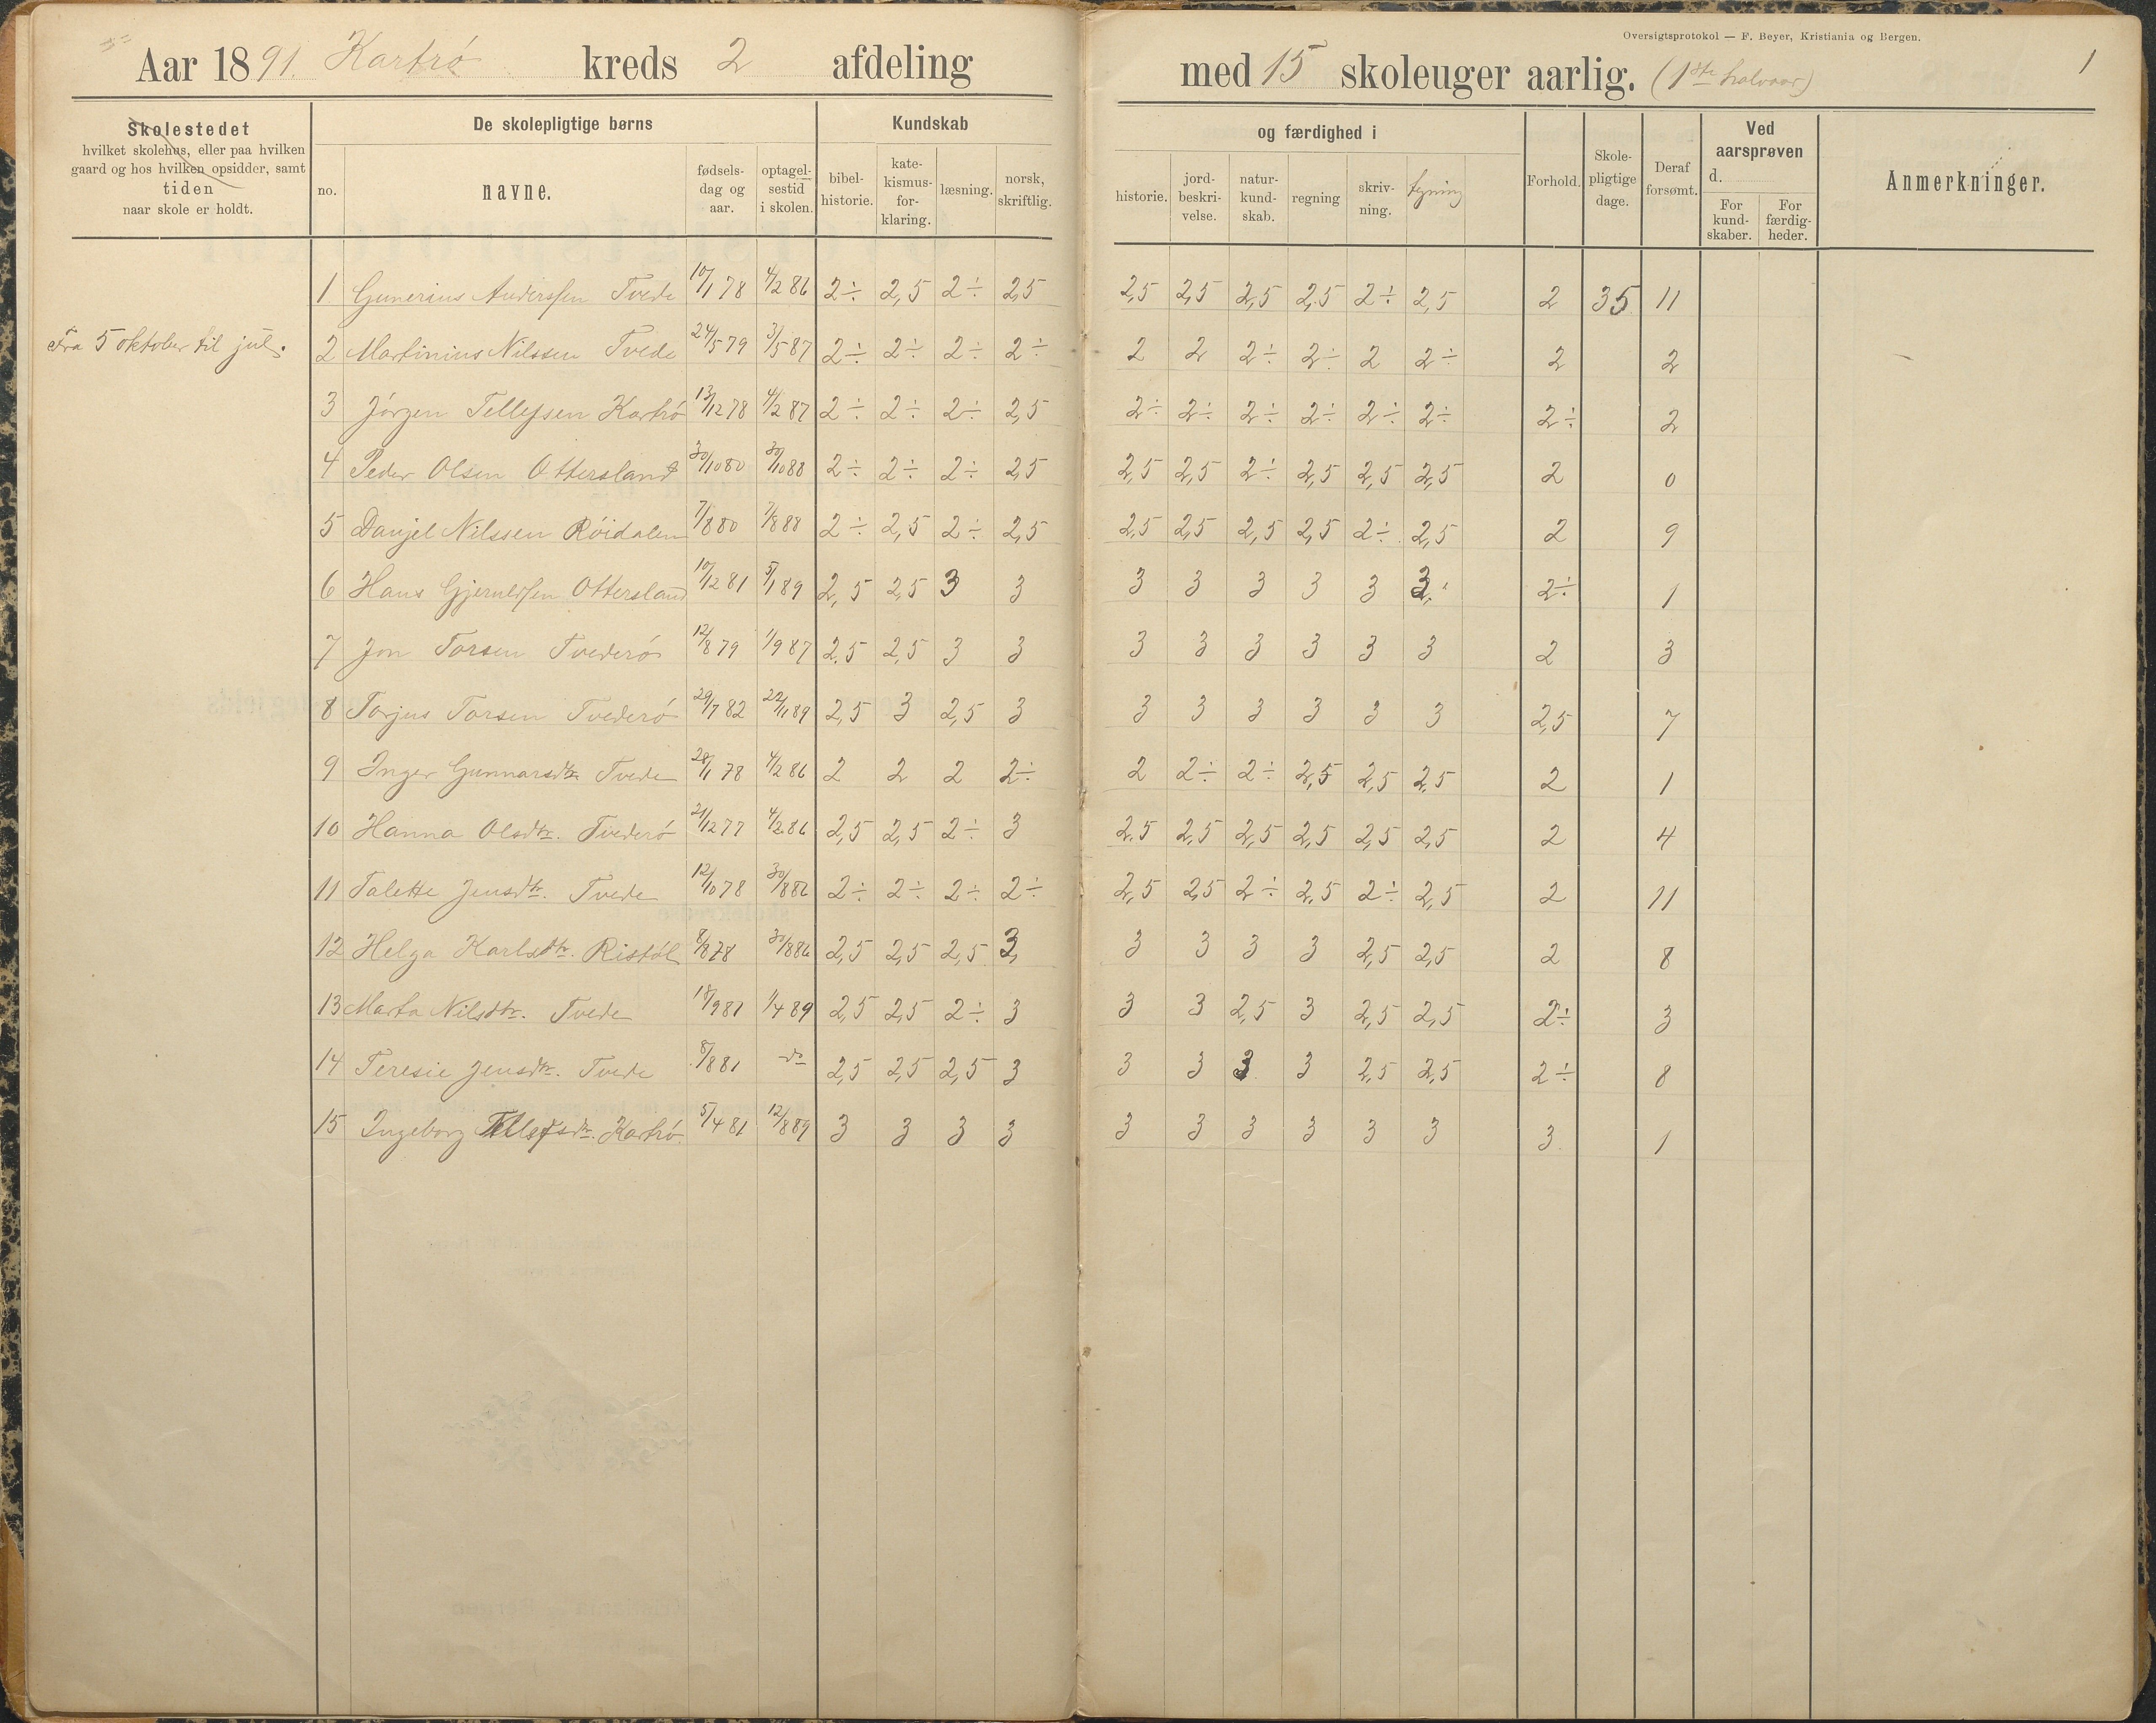 Oversigtsprotokol — F. Beyer, Kristiania og Bergen.
Aar 1891. Kartrø kreds 2 afdeling med 15 skoleuger aarlig. (1ste halvaar) 1
Skolestedet
hvilket skolehus, eller paa hvilken
gaard og hos hvilken opsidder, samt
tiden
naar skole er holdt.
De skolepligtige børns
no. navne. fødselsdag og aar. optagelsestid i skolen.
Kundskab og færdighed i
bibelhistorie. katekismusforklaring. læsning. norsk, skriftlig. historie. jordbeskrivelse. naturkundskab. regning skrivning. tegning
Forhold. Skolepligtige dage. Deraf forsømt.
Ved aarsprøven d.
For kundskaber. For færdigheder.
Anmerkninger.
1 Gunerius Anderssen Tvede 10/1 78 4/2 86 2÷ 2,5 2÷ 2,5 2,5 2,5 2,5 2,5 2÷ 2,5 2 35 11
Fra 5 oktober til jul.
2 Martinius Nilssen Tvede 24/5 79 3/5 87 2÷ 2÷ 2÷ 2÷ 2 2 2÷ 2÷ 2 2÷ 2 2
3 Jörgen Tellefsen Kartrö 13/12 78 4/2 87 2÷ 2÷ 2÷ 2,5 2÷ 2÷ 2÷ 2÷ 2÷ 2÷ 2÷ 2
4 Peder Olsen Ottersland 30/10 80 30/10 88 2÷ 2÷ 2÷ 2,5 2,5 2,5 2÷ 2,5 2,5 2,5 2 0
5 Danjel Nilssen Röidalen 7/8 80 7/8 88 2÷ 2,5 2÷ 2,5 2,5 2,5 2,5 2,5 2÷ 2,5 2 9
6 Hans Gjerulfsen Ottersland 10/12 81 5/1 89 2,5 2,5 3 3 3 3 3 3 3 3 2÷ 1
7 Jon Torsen Tvederö 12/8 79 1/9 87 2,5 2,5 3 3 3 3 3 3 3 3 2 3
8 Torjus Torsen Tvederö 29/7 82 22/11 89 2,5 3 2,5 3 3 3 3 3 3 3 2,5 7
9 Inger Gunnarsdtr. Tvede 28/1 78 4/2 86 2 2 2 2÷ 2 2÷ 2÷ 2,5 2,5 2,5 2 1
10 Hanna Olsdtr. Tvederö 21/12 77 4/2 86 2,5 2,5 2÷ 3 2,5 2,5 2,5 2,5 2,5 2,5 2 4
11 Talette Jensdtr. Tvede 12/10 78 30/8 86 2÷ 2÷ 2÷ 2÷ 2,5 2,5 2÷ 2,5 2÷ 2,5 2 11
12 Helga Karlsdtr. Ristöl 8/8 78 30/8 86 2,5 2,5 2,5 3 3 3 3 3 2,5 2,5 2 8
13 Marta Nilsdtr. Tvede 18/9 81 1/4 89 2,5 2,5 2÷ 3 3 3 2,5 3 2,5 2,5 2÷ 3
14 Teresie Jensdtr. Tvede 8/8 81 do 2,5 2,5 2,5 3 3 3 3 3 2,5 2,5 2÷ 8
15 Ingeborg Tellefsdtr. Kartrö 5/4 81 12/8 89 3 3 3 3 3 3 3 3 3 3 3 1